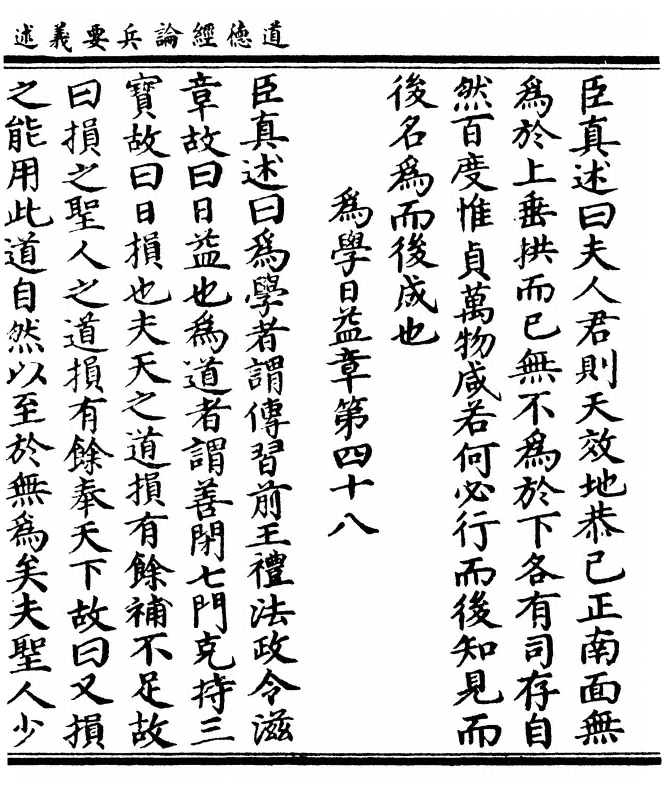 道德經論兵要義述
臣真述曰夫人君則天效地恭己正南面無
為於上垂拱而已無不為於下各有司存自
然百度惟貞萬物咸若何必行而後知見而
後名為而後成也
為學日益章第四十八
臣真述曰為學者謂傳習前王禮法政令滋
章故曰日益也為道者謂善閉七門克持三
寶故曰日損也夫天之道損有餘補不足故
曰損之聖人之道損有餘奉天下故曰又損
之能用此道自然以至於無為矣夫聖人少